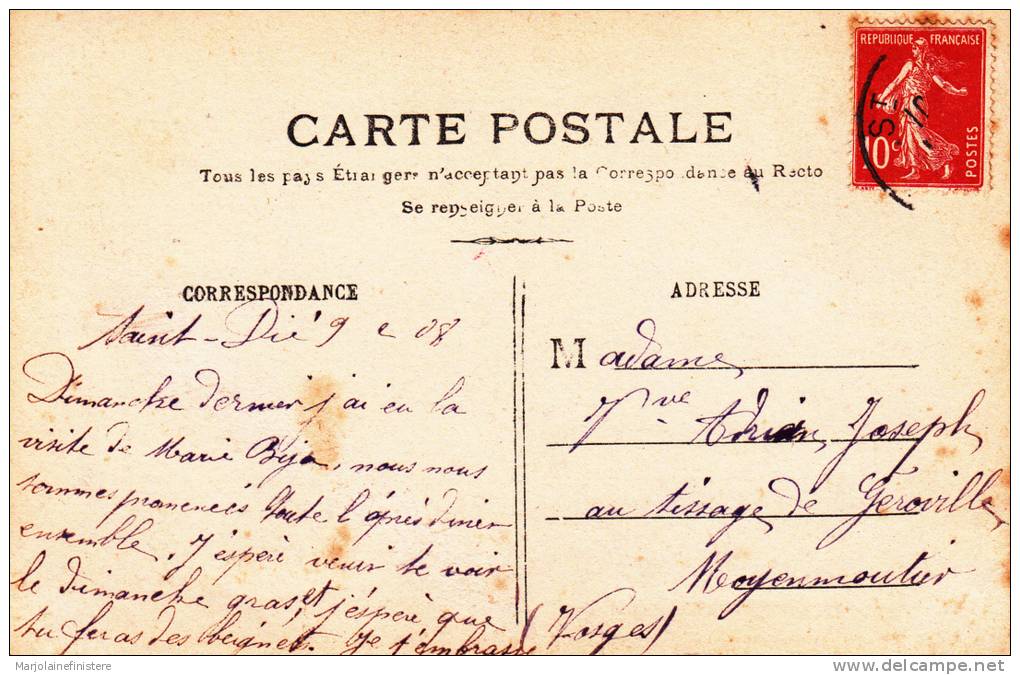 REPUBLIQUE FRANÇAISE
10c
POSTES
CARTE POSTALE
Tous les pays Étrangers n'acceptant pas la Correspondance au Recto
Se renseigner à la Poste
CORRESPONDANCE
Saint-Dié 9 2 08
Dimanche dernier j'ai eu la
visite de Marie, nous nous
sommes promenées toute l'après diner
ensemble. J'espère venir te voir
le dimanche gras, et j'espère que
tu feras des beignets. Je t'embrasse
ADRESSE
Madame
Vve Adrian Joseph
au tissage de Géroville
Moyenmoutier
(Vosges)
Marjolainefinistere
delcampe.net